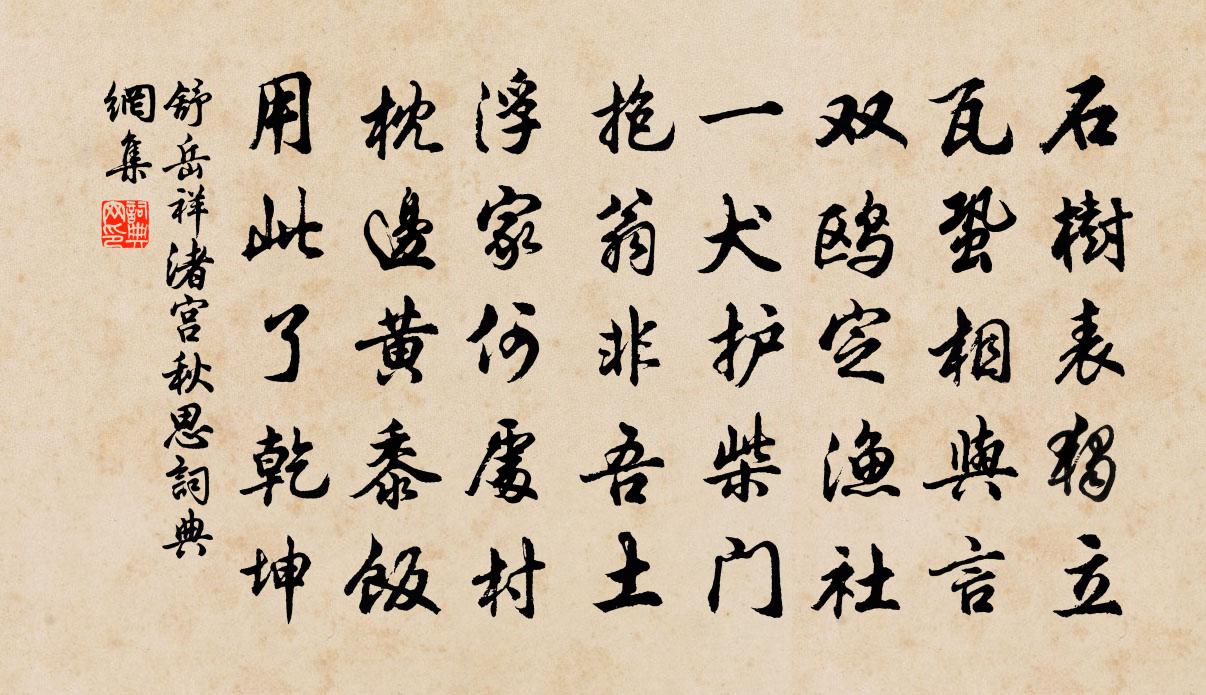 石樹表獨立
瓦蛩相與言
双鸥定漁社
一犬护柴门
抱翁非吾土
浮家何處村
枕邊黄黍飯
用此了乾坤
舒岳祥渚宫秋思詞典
網集
詞典網印